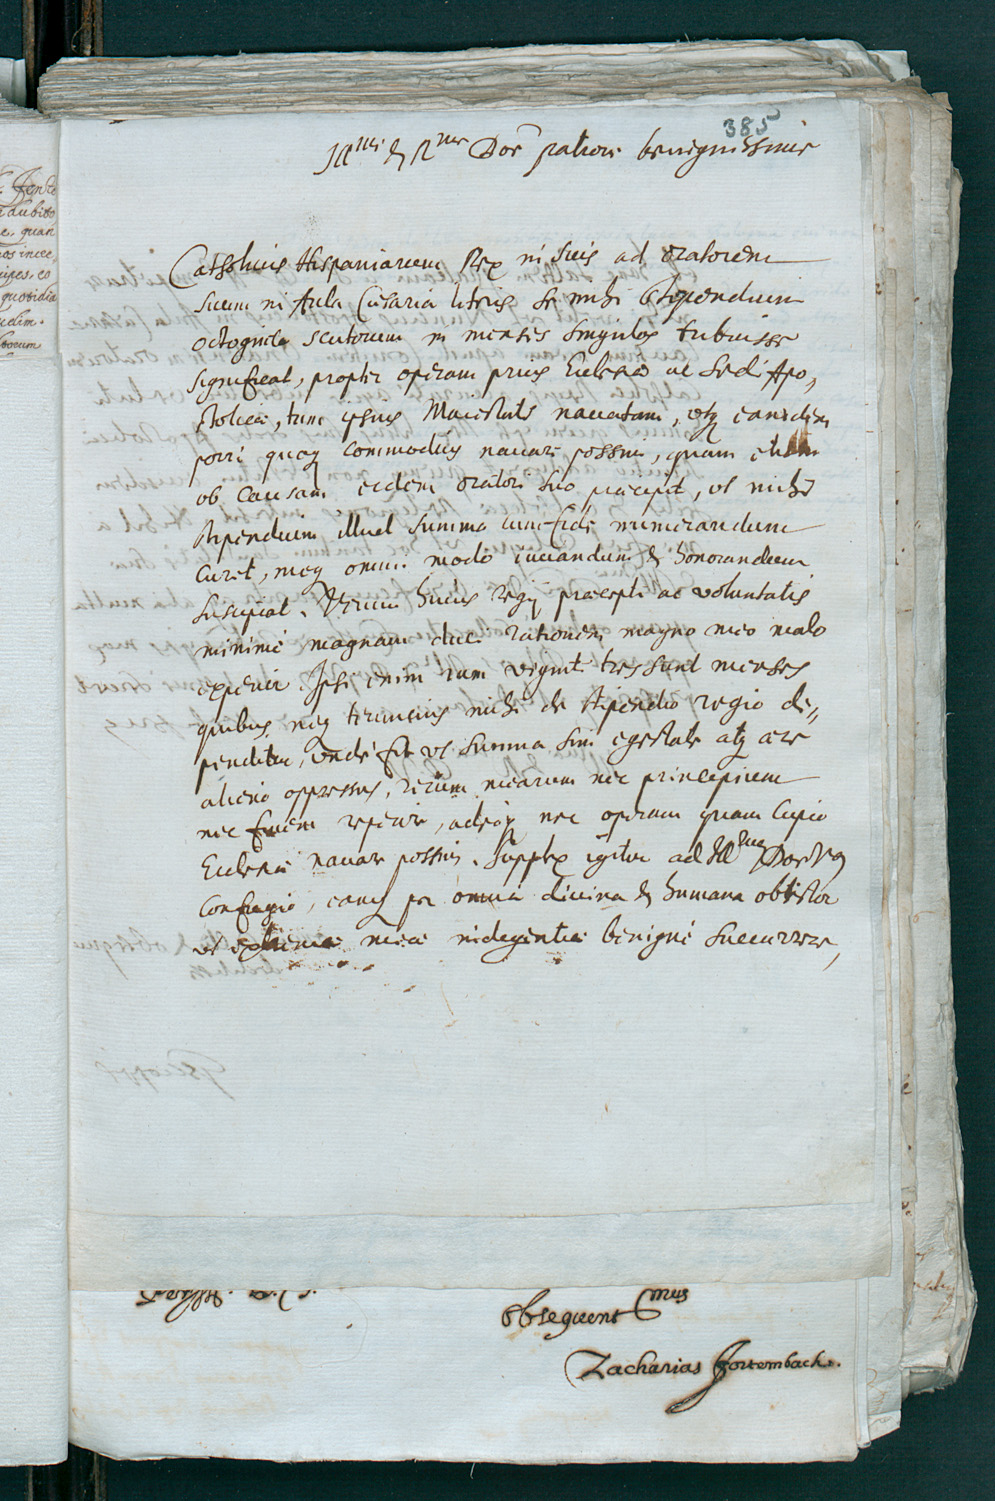 385
Ill^mi & R^mi Dōe patrone benignissime
Catholicus Hispaniarum Rex in suis ad oratorem
suum in Aula Cæsaria literis se mihi stipendium
octoginta scutorum in menses singulos tribuisse
significat, propter operam prius Ecclesiæ ac Sedi Apo,
stolicæ, tunc ipsius Maiestatis navatam, utq eandem
porrò quoq commodius navare possim, quam etiam
ob causam eidem oratori suo præcipit, ut mihi
stipendium illud summa cum fide numerandum
curet, meq omni modo iuvandum & honorandum
suscipiat. Verum huius regij præcepti ac voluntatis
minimè magnam duci rationem magno meo malo
experior. Ipsi enim iam viginti tres sunt menses
quibus neq teruncius mihi de stipendio regio de,,
penditur, unde fit ut summa sim egestate atq ære
alieno oppressus, rerum mearum nec principium
nec finem reperire, adeoq nec operam quam cupio
Ecclesiæ navare possim. Supplex igitur ad Ill^mam Do
confugio, eamq per omnia divina & humana obtestor
ut extremæ meæ indigentiæ benignè succurrere,
obsequent^mus
Zacharias Fortembach.
e dubito
e, quan
nos ince,
quotidia